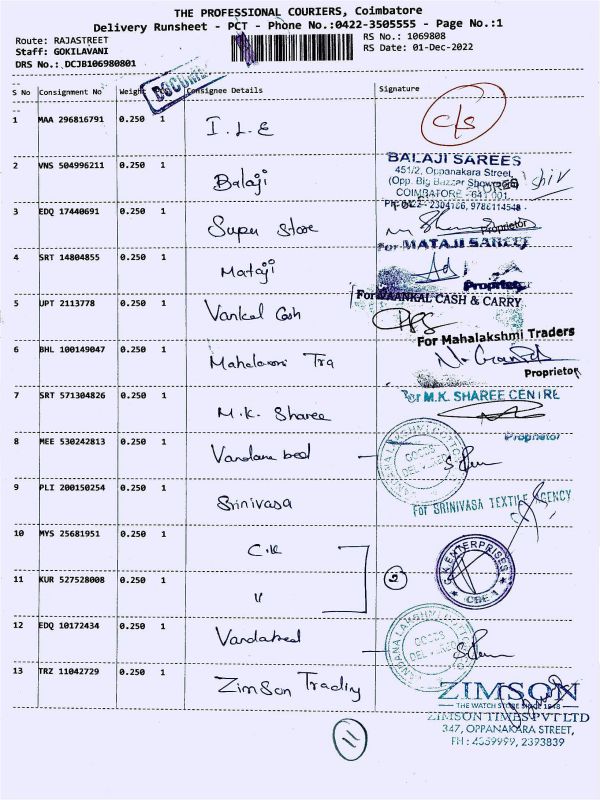 THE PROFESSIONAL COURIERS, Coimbatore
Delivery Runsheet - PCT - Phone No.:0422-3505555 - Page No.:1
Route: RAJASTREET
RS No.: 1069808
Staff: GOKILAVANI
RS Date: 01-Dec-2022
DRS No.: DCJB106980801
S No Consignment No Weight Consignee Details Signature
1 MAA 296816791 0.250 1 I.L.E C/S
2 VNS 504996211 0.250 1 Balaji
BALAJI SAREES
451/2, Oppanakara Street,
(Opp. Big Bazzer Showroom)
COIMBATORE - 641 001.
3 EDQ 17440691 0.250 1 Super Store
Proprietor
4 SRT 14804855 0.250 1 Mataji
For MATAJI SAREE
Proprietor
5 UPT 2113778 0.250 1 Vankal Cash
For VAANKAL CASH & CARRY
6 BHL 100149047 0.250 1 Mahalaxmi Tra
For Mahalakshmi Traders
Proprietor
7 SRT 571304826 0.250 1 M.K. Sharee
For M.K. SHAREE CENTRE
Proprietor
8 MEE 530242813 0.250 1 Vandana bed
GOODS
DELIVERED
9 PLI 200150254 0.250 1 Srinivasa
For SRINIVASA TEXTILE AGENCY
10 MYS 25681951 0.250 1 C.K
C.K ENTERPRISES
CBE-1
11 KUR 527528008 0.250 1 "
2
12 EDQ 10172434 0.250 1 Vandabed
GOODS
DELIVERED
13 TRZ 11042729 0.250 1 Zimson Trading
ZIMSON
THE WATCH STORE SINCE 1948
ZIMSON TIMES PVT LTD
347, OPPANAKARA STREET,
PH : 4359999, 2393839
11